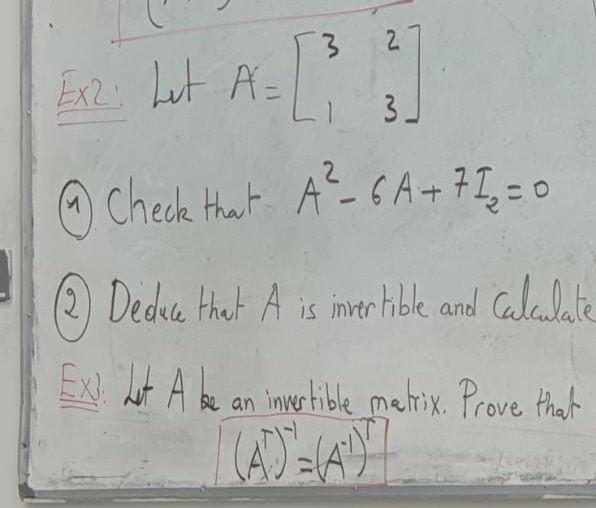 Ex2: Let A = [3 2
1 3]
① Check that A² - 6A + 7I₂ = 0
② Deduce that A is invertible and Calculate
Ex3: Let A be an invertible matrix. Prove that
(Aᵀ)⁻¹ = (A⁻¹)ᵀ